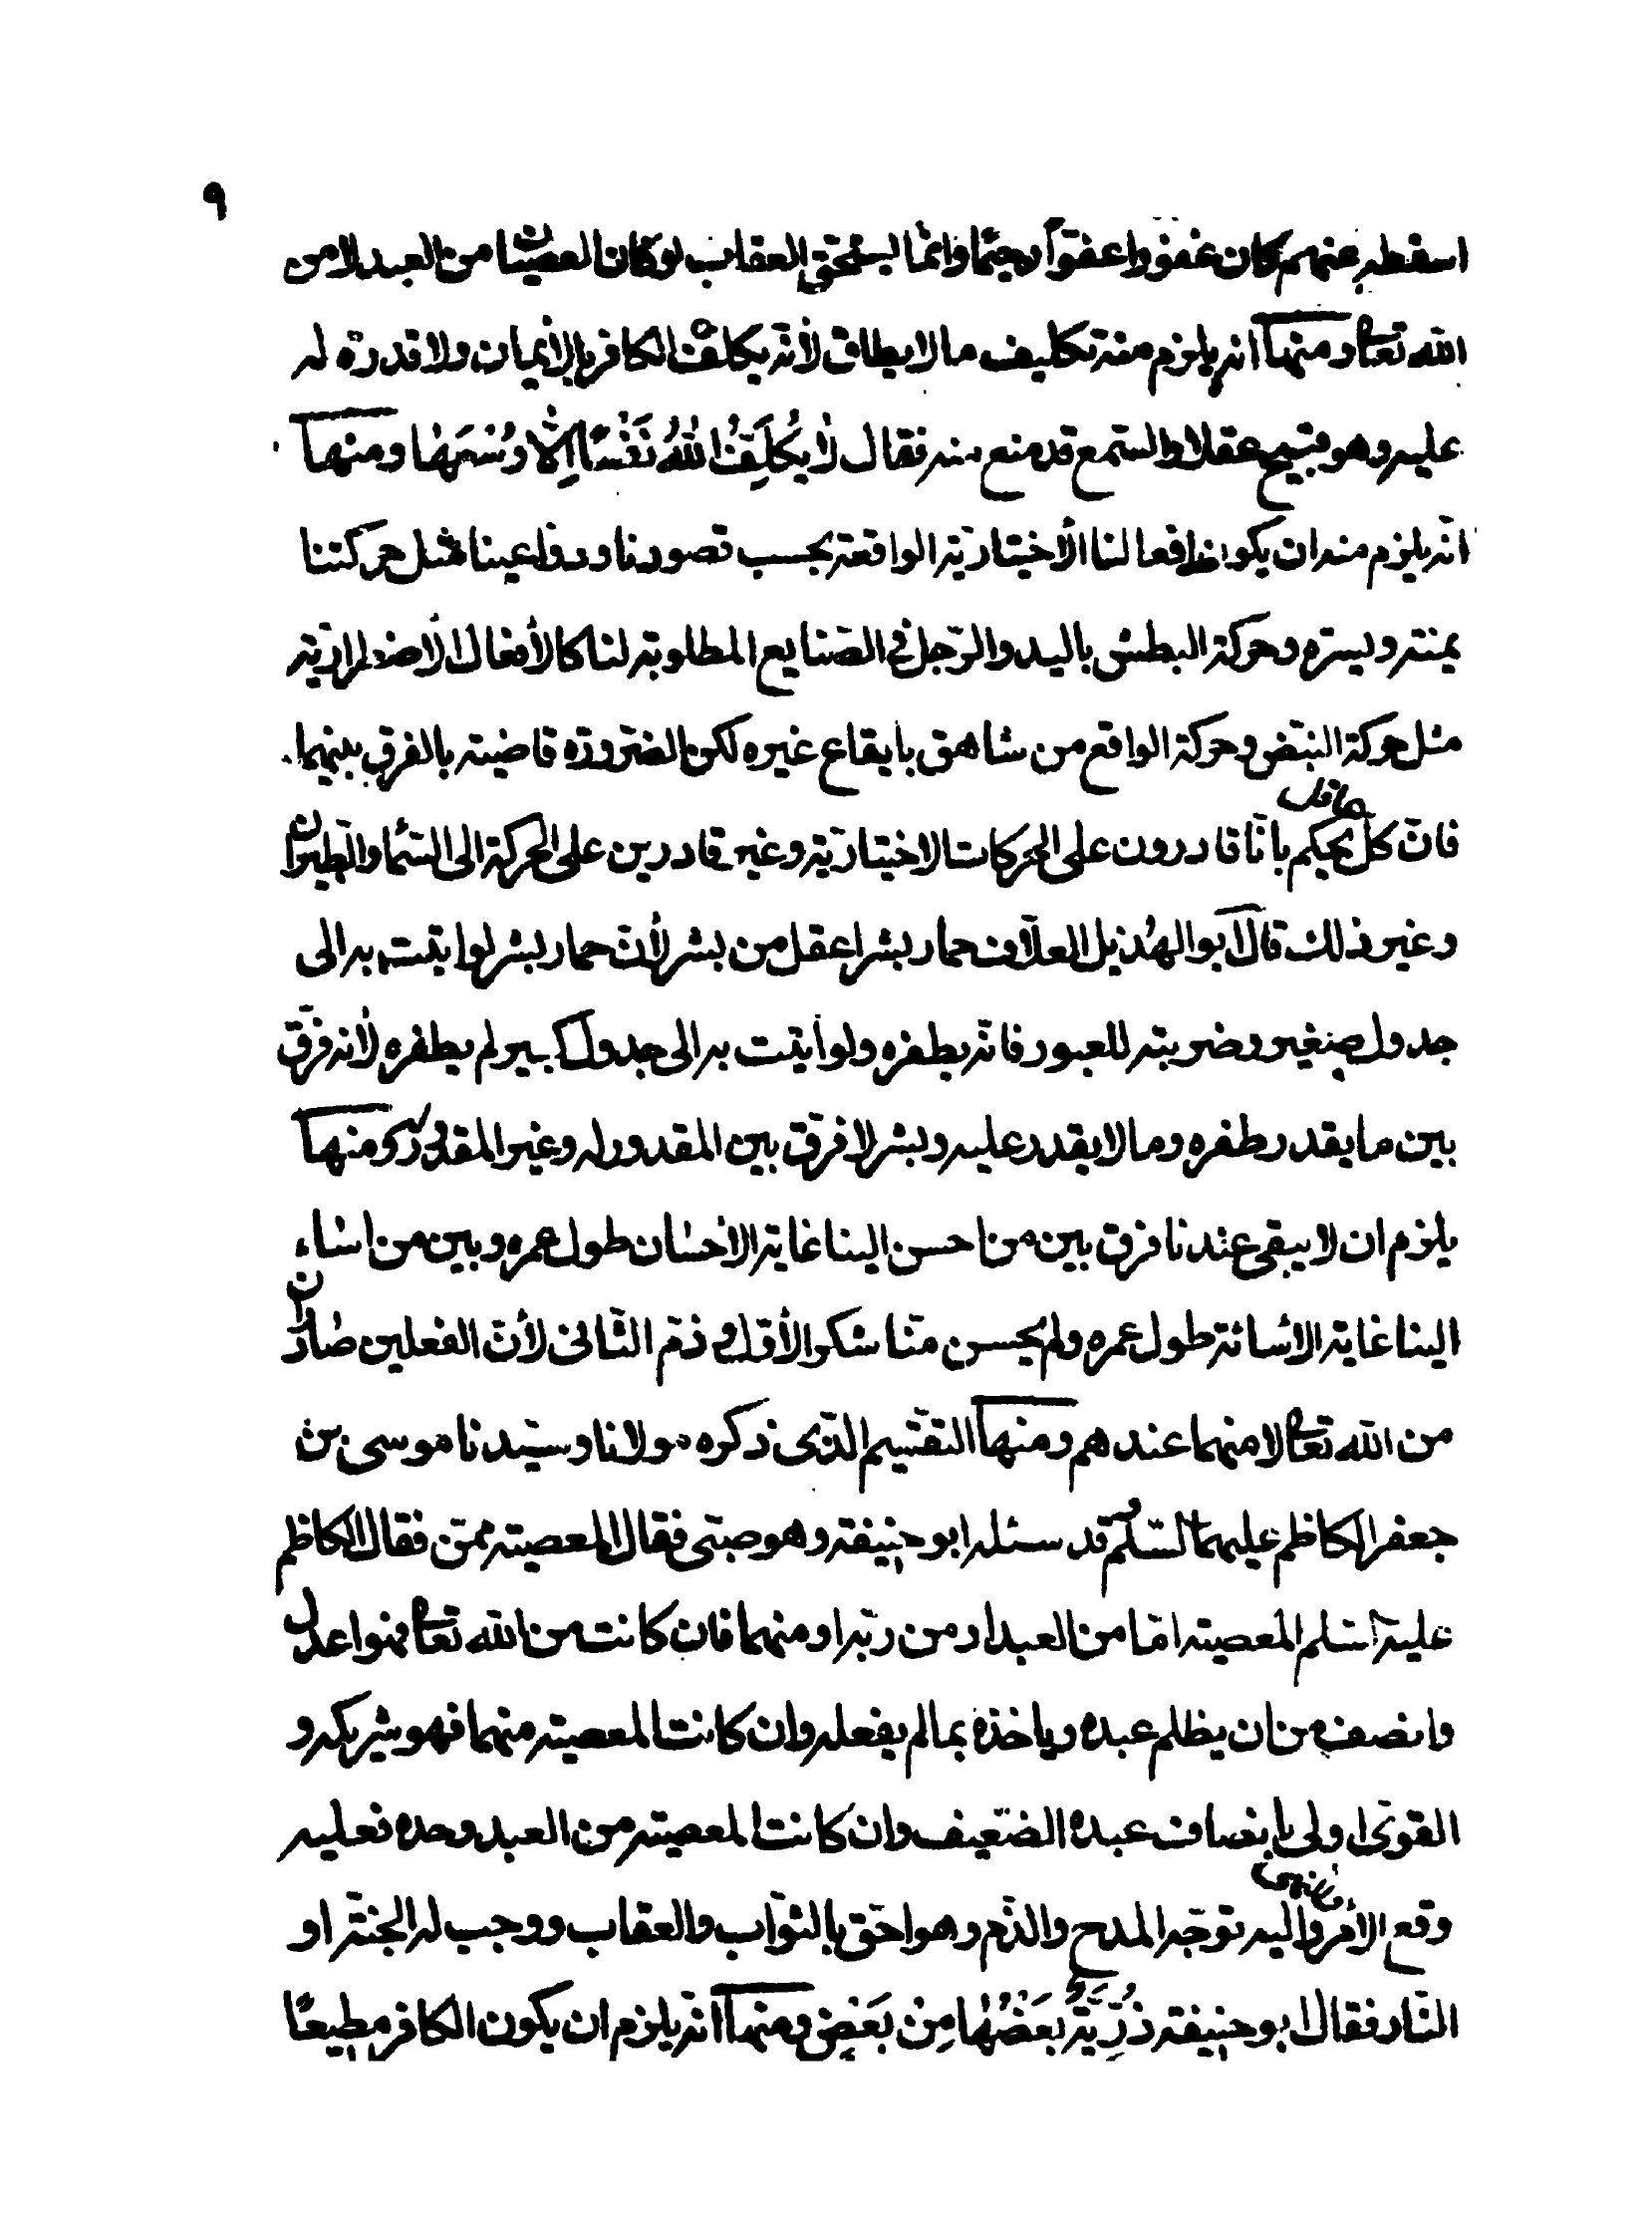 ٩
اسقطه عنهم كان غفورا عفوّا رحيما وانّما يستحقّ العقاب لو كان العصيان من العبد لا من
الله تعالى ومنها انه يلزم منه تكليف ما لا يطاق لأنّه يكلّف الكافر بالإيمان ولا قدرة له
عليه وهو قبيح عقلا والسّمع قد منع منه فقال لا يُكَلِّفُ اللهُ نَفْسًا إِلّا وُسْعَهٰا ومنها
انّه يلزم منه ان يكون افعالنا الأختياريّة الواقعة بحسب قصودنا ودواعينا مثل حركتنا
يمنة ويسرة وحركة البطش باليد والرّجل في الصّنايع المطلوبة لنا كالأفعال الأضطراريّة
مثل حركة النبض وحركة الواقع من شاهق بايقاع غيره لكن الضرورة قاضية بالفرق بينهما
فانّ كل عاقل يحكم بانّا قادرون على الحركات الاختياريّة وغير قادرين على الحركة الى السّماء والطيران
وغير ذلك قال ابو الهذيل العلاّف حمار بشر اعقل من بشر لأنّ حمار بشر لو اتيت به الى
جدول صغير وضربته للعبور فانّه يطفره ولو أتيت به الى جدول كبير لم يطفره لأنه فرّق
بين ما يقدر طفره وما لا يقدر عليه وبشر لا فرّق بين المقدور له وغير المقدور له ومنها
يلزم ان لا يبقى عندنا فرق بين من احسن الينا غاية الاحسان طول عمره وبين من اساء
الينا غاية الاسائة طول عمره ولم يحسن منّا شكر الأوّل وذمّ الثّاني لأنّ الفعلين صادران
من الله تعالى لا منهما عندهم ومنها التقسيم الذّي ذكره مولانا وسيّدنا موسى بن
جعفر الكاظم عليهما السّلم وقد سئله ابو حنيفة وهو صبّى فقال المعصية ممّن فقال الكاظم
عليه السّلم المعصية امّا من العبد او من ربّه او منهما فان كانت من الله تعالى فهو اعدل
وانصف من ان يظلم عبده وياخذه بما لم يفعله وان كانت المعصية منهما فهو شريكه و
القوىّ اولى بانصاف عبده الضّعيف وان كانت المعصية من العبد وحده فعليه
وقع الأمر واليه توجّه المدح والذّم وهو احّق بالثوّاب والعقاب ووجب له الجنّة او
النّار فقال ابو حنيفة ذُرِّيَّةً بَعْضُهٰا مِنْ بَعْضٍ ومنها انّه يلزم ان يكون الكافر مطيعًا